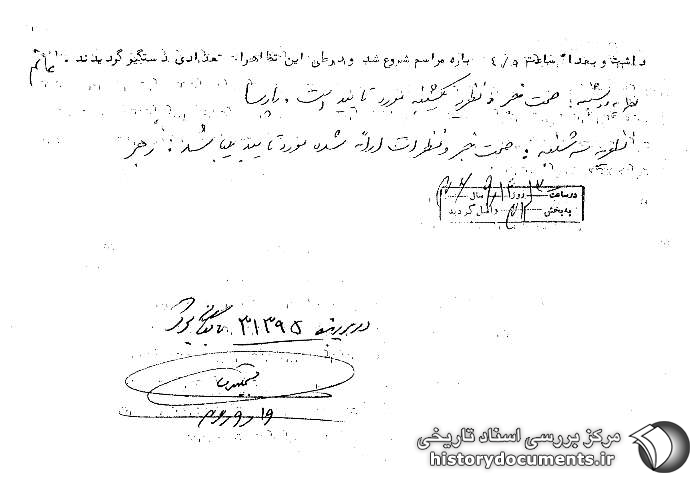 داشت و بعد از ساعت ٤/٥ باره مراسم شروع شد و در طی این تظاهرات تعدادی دستگیر گردیدند. خاتم
نظریه دوشنبه: صحت خبر و نظریه یکشنبه مورد تایید است. پارسا
نظریه سه شنبه: صحت خبر و نظرات ارائه شده مورد تایید میباشد. رهبر
در ساعت روز سال
به بخش ۳۱۲ واصل گردید
در پرونده ۳۱۳۹۵ بایگانی شود
مرکز بررسی اسناد تاریخی
historydocuments.ir